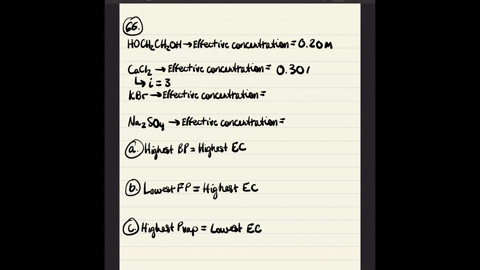 66.
HOCH₂CH₂OH → Effective concentration = 0.20m
CaCl₂ → Effective concentration = 0.30
↳ i = 3
KBr → Effective concentration =
Na₂SO₄ → Effective concentration =
a. Highest BP = Highest EC
b. Lowest FP = Highest EC
c. Highest Pvap = Lowest EC